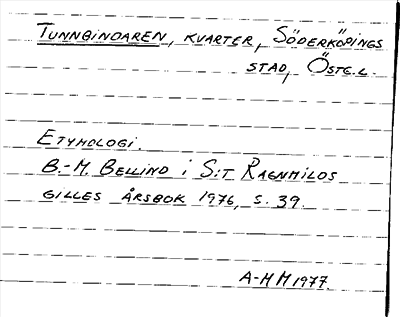 TUNNBINDAREN, KVARTER, SÖDERKÖPINGS
STAD, ÖSTG.L.
ETYMOLOGI.
B.-M. BELLIND i S:T RAGNHILDS
GILLES ÅRSBOK 1976, S. 39.
A-H M 1977.